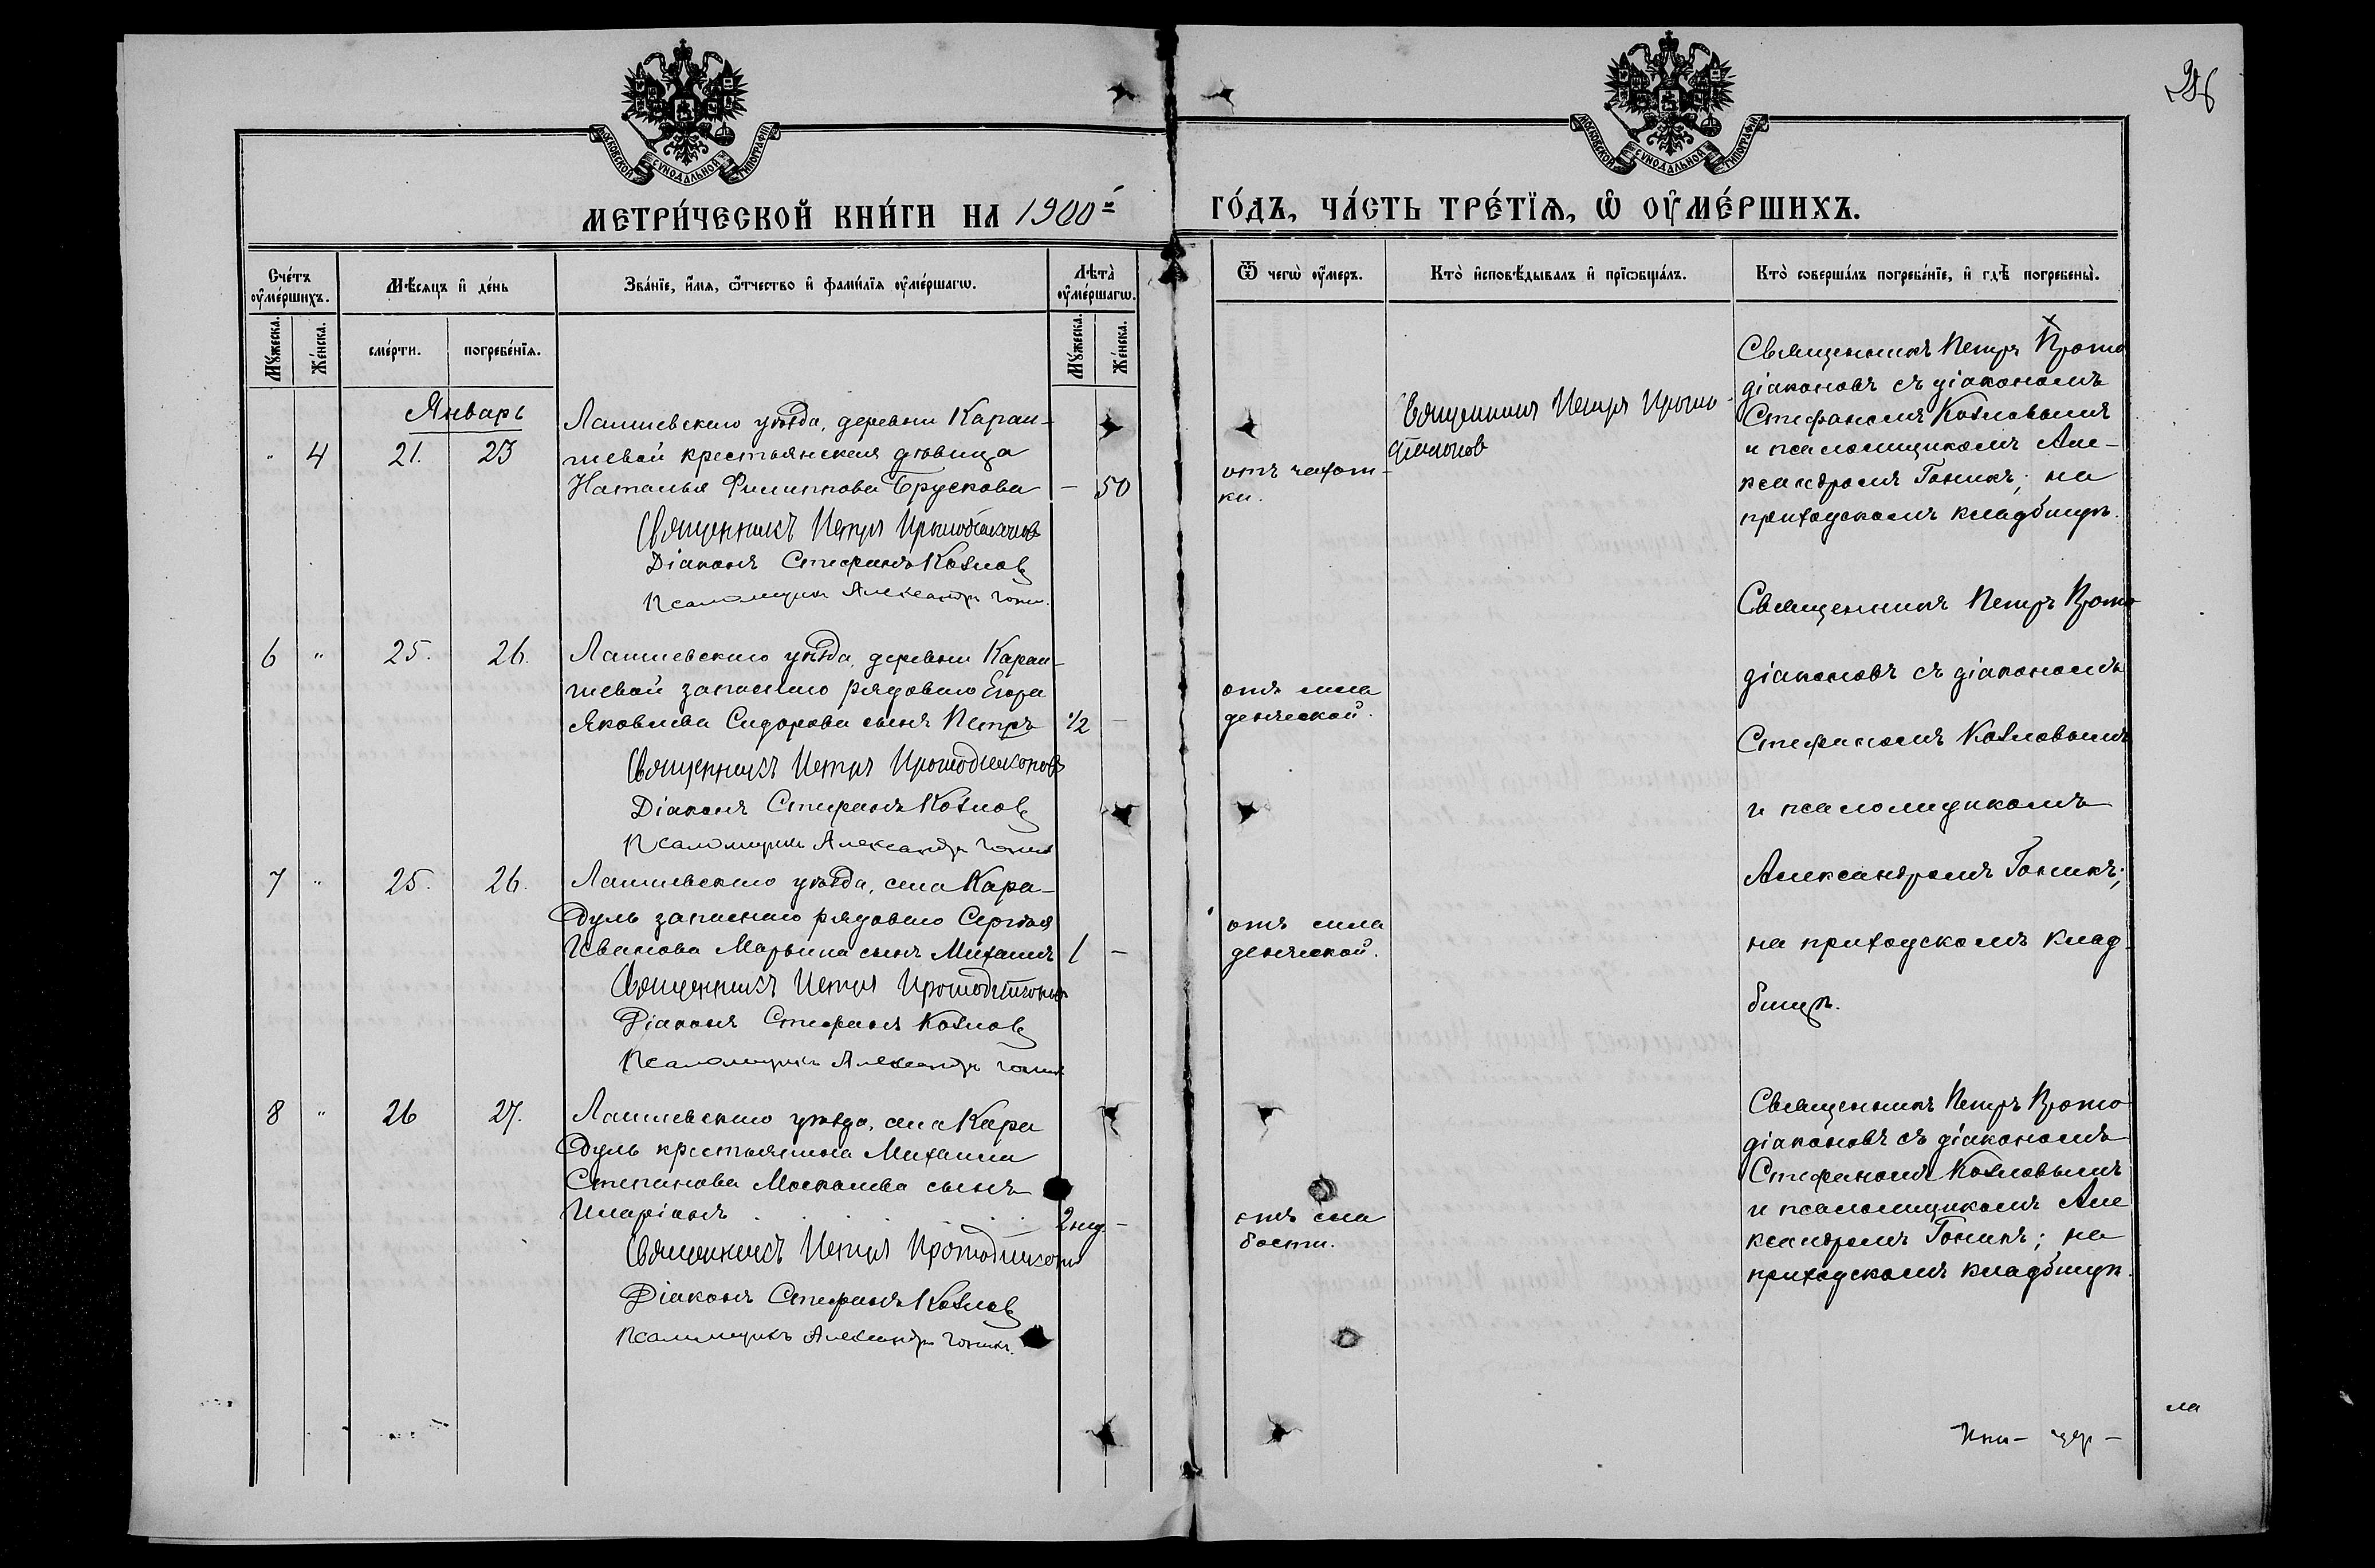 МОСКОВСКОЙ СѴНОДАЛЬНОЙ ТИПОГРАФІИ
МОСКОВСКОЙ СѴНОДАЛЬНОЙ ТИПОГРАФІИ
МЕТРИ́ЧЕСКОЙ КНИ́ГИ НА 1900й
ГО́ДЪ, ЧА́СТЬ ТРЕ́ТЇѦ, Ѡ҆ ОУ҆МЕ́РШИХЪ.
Сче́тъ оу҆ме́ршихъ.
Мꙋ́жеска.
Же́нска.
Мѣ́сяцъ и҆ де́нь
сме́рти.
погребе́нїѧ.
Зва́нїе, и҆́мѧ, ѻ҆́тчество и҆ фами́лїѧ оу҆ме́ршагѡ.
Лѣта̀ оу҆ме́ршагѡ.
Мꙋ́жеска.
Же́нска.
Ѿ чегѡ̀ оу҆́меръ.
Кто̀ и҆сповѣ́дывалъ и҆ прїѡбща́лъ.
Кто̀ соверша́лъ погребе́нїе, и҆ гдѣ̀ погребены̀.
Январь
" 4 21. 23
Лаишевскаго уѣзда, деревни Караи-
шевой крестьянская дѣвица
Наталья Филиппова Брускова — 50
Священникъ Петръ Протодіаконов
Діаконъ Стефанъ Козлов
Псаломщикъ Александръ Гоникъ
отъ чахот-
ки.
Священникъ Петръ Прото-
діаконов
Священникъ Петръ Прото
діаконовъ съ діакономъ
Стефаномъ Козловымъ
и псаломщикомъ Але-
ксандромъ Гоникъ; на
приходскомъ кладбищѣ.
6 " 25. 26.
Лаишевскаго уѣзда, деревни Караи-
шевой запаснаго рядоваго Егора
Яковлева Сидорова сынъ Петръ 1/2 —
Священникъ Петръ Протодіаконовъ
Діаконъ Стефанъ Козлов
Псаломщикъ Александръ Гоникъ
отъ мла
денческой.
Священникъ Петръ Прото
діаконовъ съ діакономъ
Стефаномъ Козловымъ
и псаломщикомъ
Александромъ Гоникъ;
на приходскомъ клад
бищѣ.
7 " 25. 26.
Лаишевскаго уѣзда, села Кара-
дуль запаснаго рядоваго Сергѣя
Иванова Марьина сынъ Михаилъ 1 —
Священникъ Петръ Протодіаконов
Діаконъ Стефанъ Козлов
Псаломщикъ Александръ Гоникъ
отъ мла
денческой.
8 " 26 27.
Лаишевскаго уѣзда, села Кара
дуль крестьянина Михаила
Степанова Москалева сынъ
Иларіонъ 2 нед. —
Священникъ Петръ Протодіаконов
Діаконъ Стефанъ Козлов
Псаломщикъ Александръ Гоникъ.
отъ сла
бости.
Священникъ Петръ Прото
діаконовъ съ діакономъ
Стефаномъ Козловымъ
и псаломщикомъ Але
ксандромъ Гоникъ; на
приходскомъ кладбищѣ.
ла